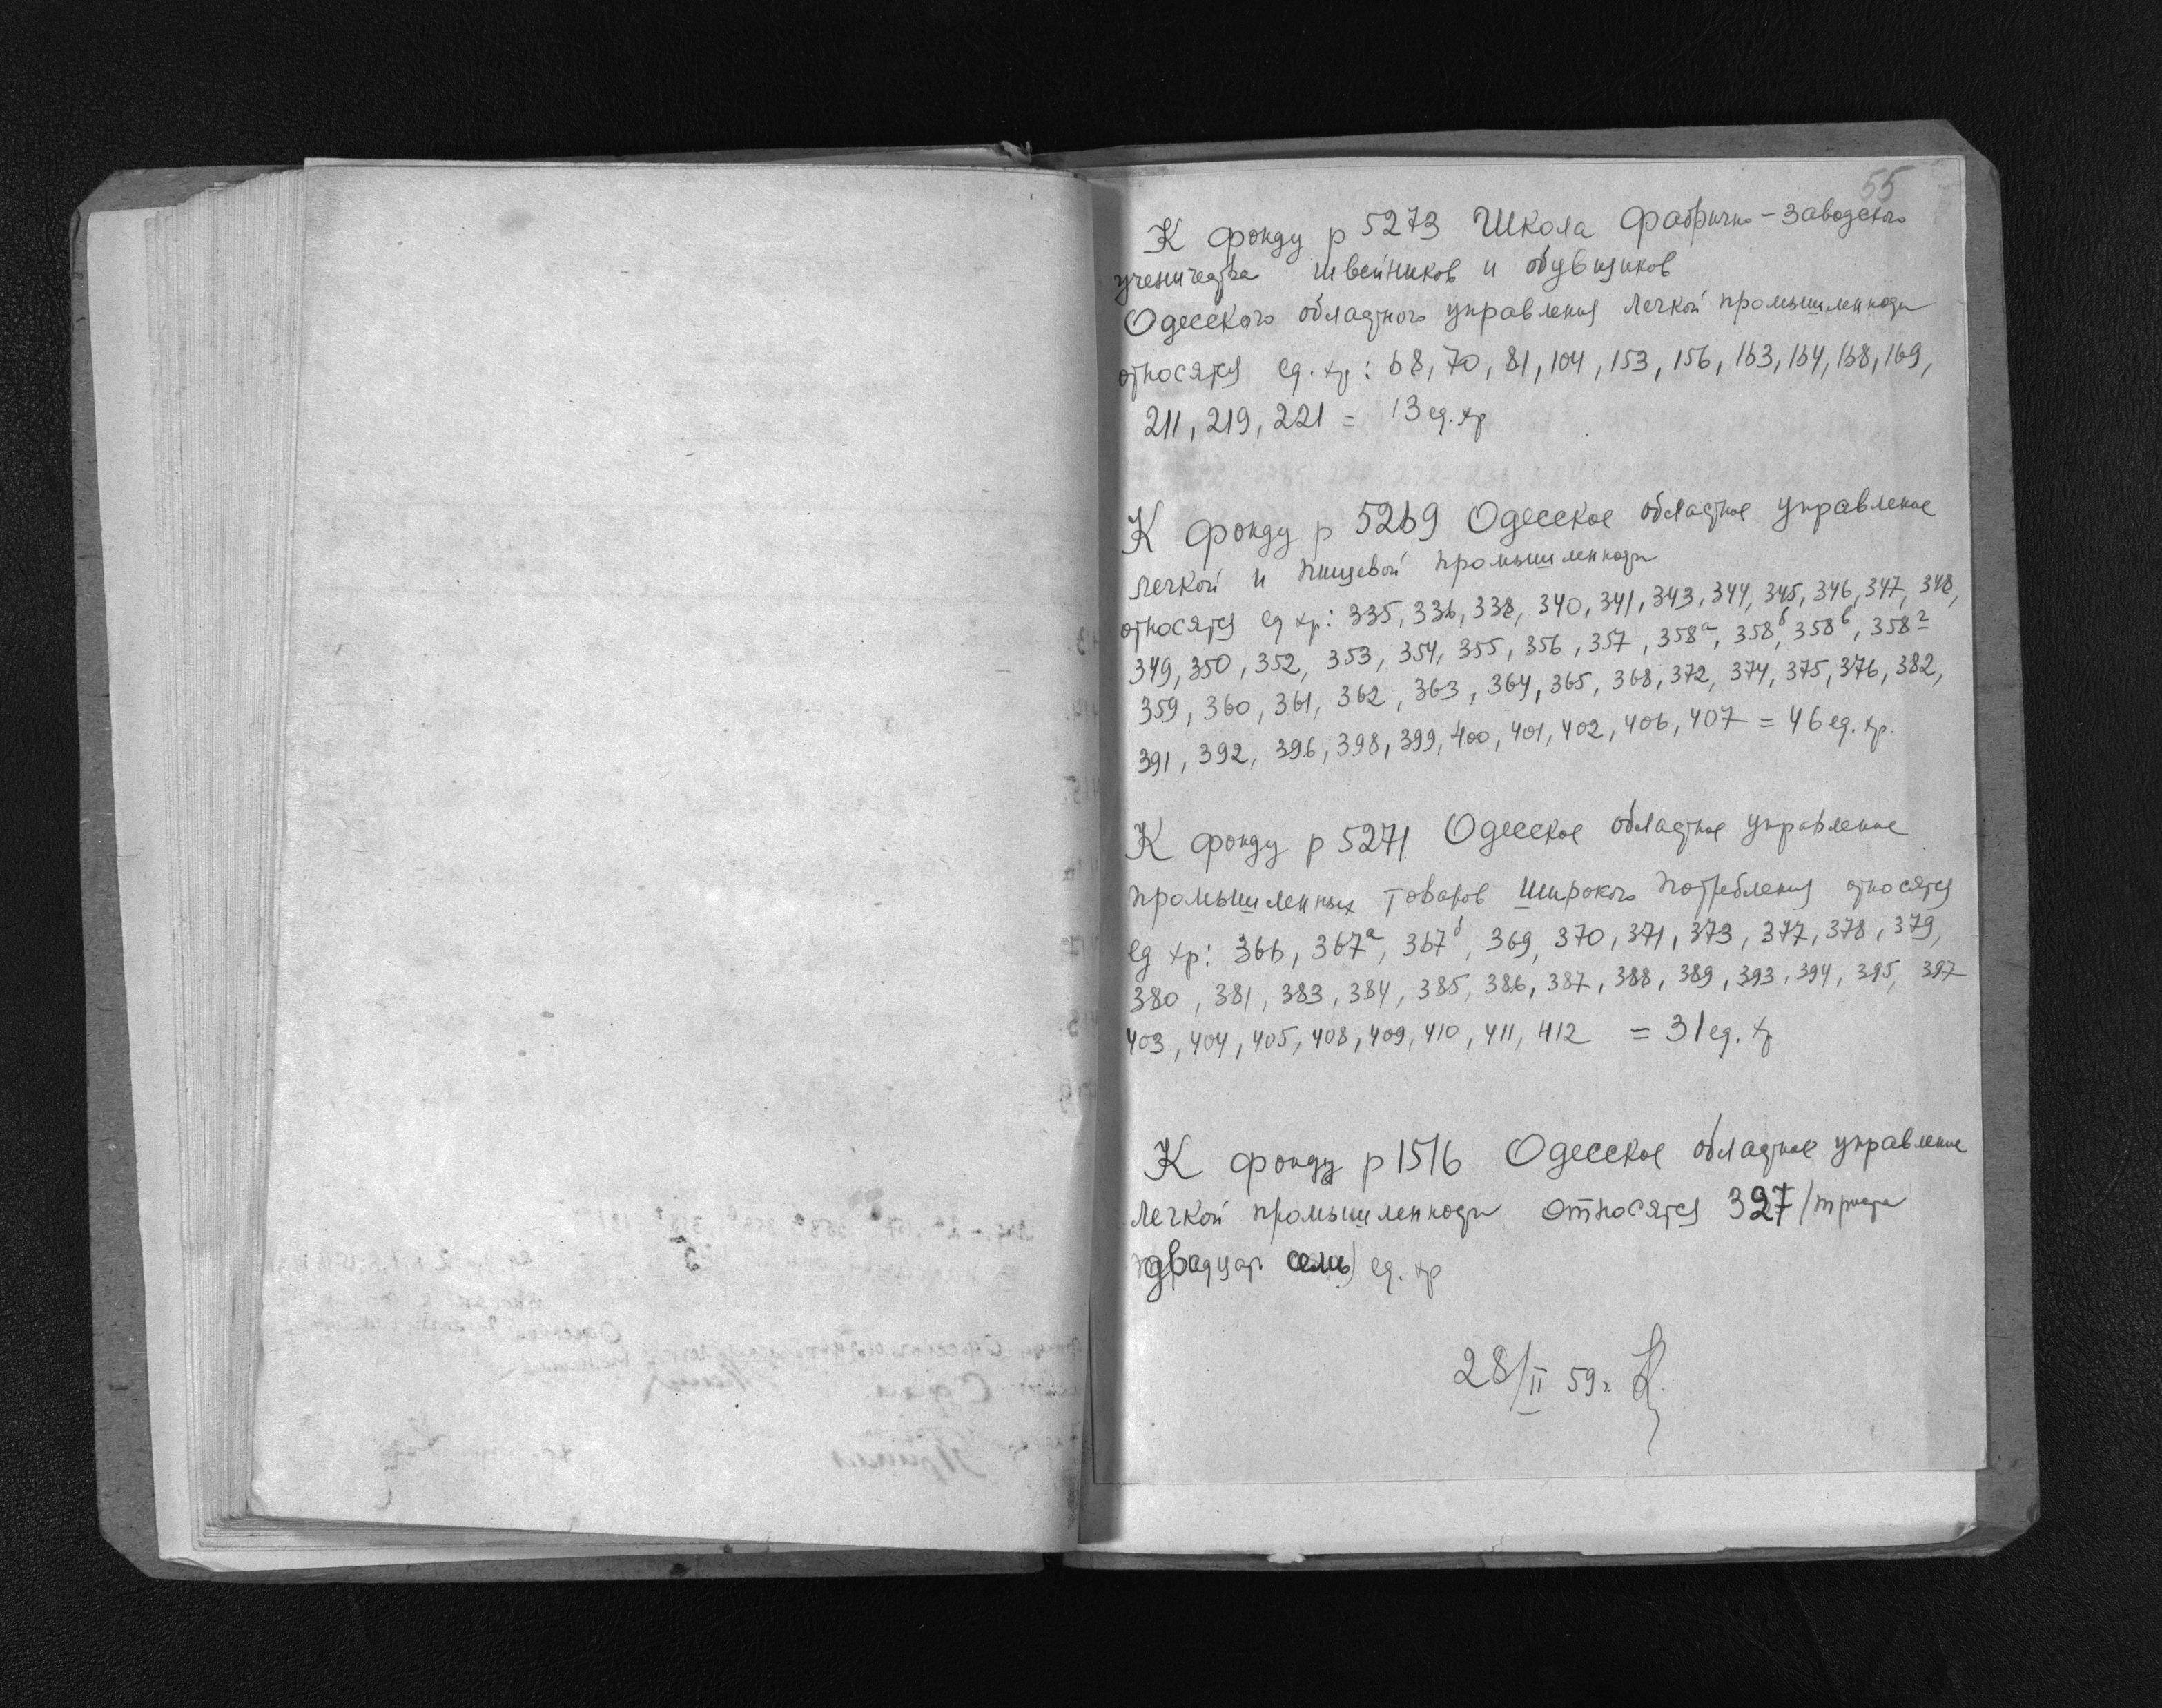 55
К фонду р 5273 Школа фабрично-заводского
ученичества швейников и обувщиков
Одесского областного управления легкой промышленности
относятся ед. хр: 68, 70, 81, 104, 153, 156, 163, 164, 168, 169,
211, 219, 221 = 13 ед. хр
К фонду р 5269 Одесское областное управление
легкой и пищевой промышленности
относятся ед хр: 335, 336, 338, 340, 341, 343, 344, 345, 346, 347, 348,
349, 350, 352, 353, 354, 355, 356, 357, 358а, 358б, 358в, 358г
359, 360, 361, 362, 363, 364, 365, 368, 372, 374, 375, 376, 382,
391, 392, 396, 398, 399, 400, 401, 402, 406, 407 = 46 ед. хр.
К фонду р 5271 Одесское областное управление
промышленных товаров широкого потребления относятся
ед хр: 366, 367а, 367б, 369, 370, 371, 373, 377, 378, 379,
380, 381, 383, 384, 385, 386, 387, 388, 389, 393, 394, 395, 397
403, 404, 405, 408, 409, 410, 411, 412 = 31 ед. хр
К фонду р 1516 Одесское областное управление
легкой промышленности относятся 327 /триста
двадцать семь) ед. хр
28/II 59г.